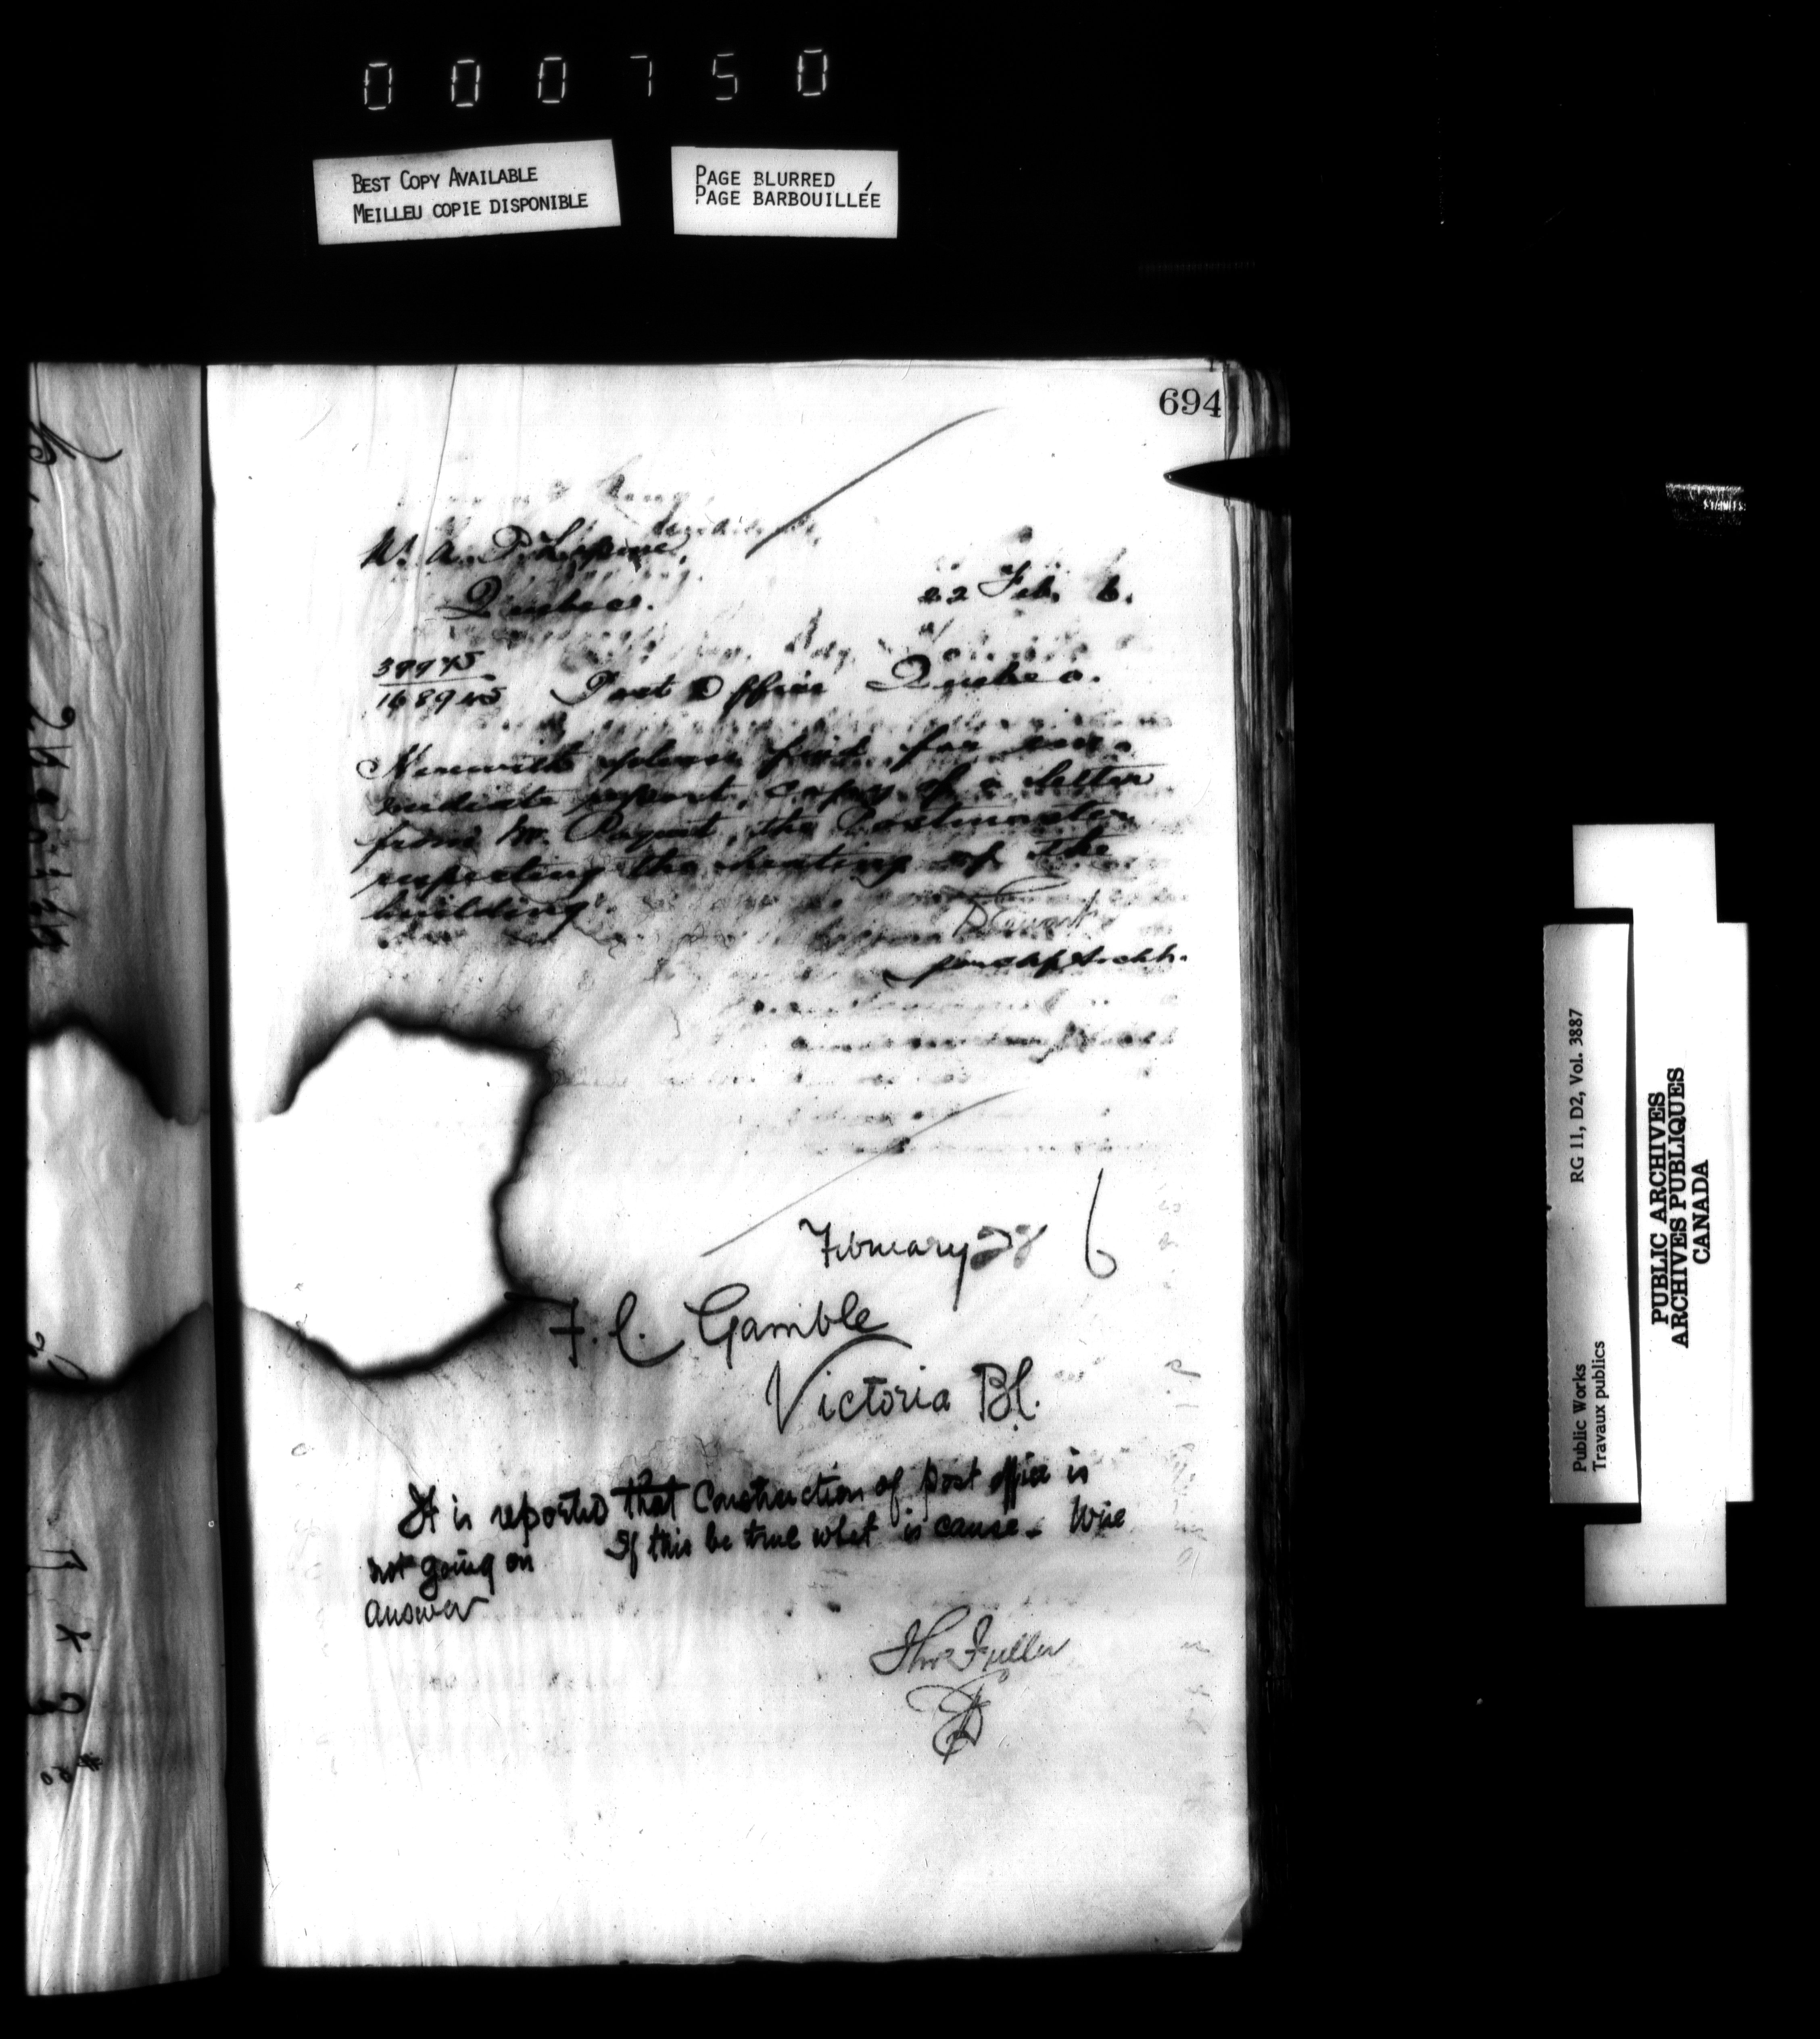 000750
BEST COPY AVAILABLE
MEILLEU COPIE DISPONIBLE
PAGE BLURRED
PAGE BARBOUILLÉE
694
W. A. P. Lepine,
Quebec.
22 Feb. 6.
168945 Post Office Quebec.
Herewith please find, for imm-
ediate report, copy of a letter
from Mr. Paquet, the Postmaster
respecting the heating of the
building.
D Ewart
for Chf Archt.
February 28 6
F. C. Gamble
Victoria B.C.
It is reported that Construction of post office is
not going on If this be true what is cause. Wire
answer
Thos Fuller
RG 11, D2, Vol. 3887
Public Works
Travaux publics
PUBLIC ARCHIVES
ARCHIVES PUBLIQUES
CANADA